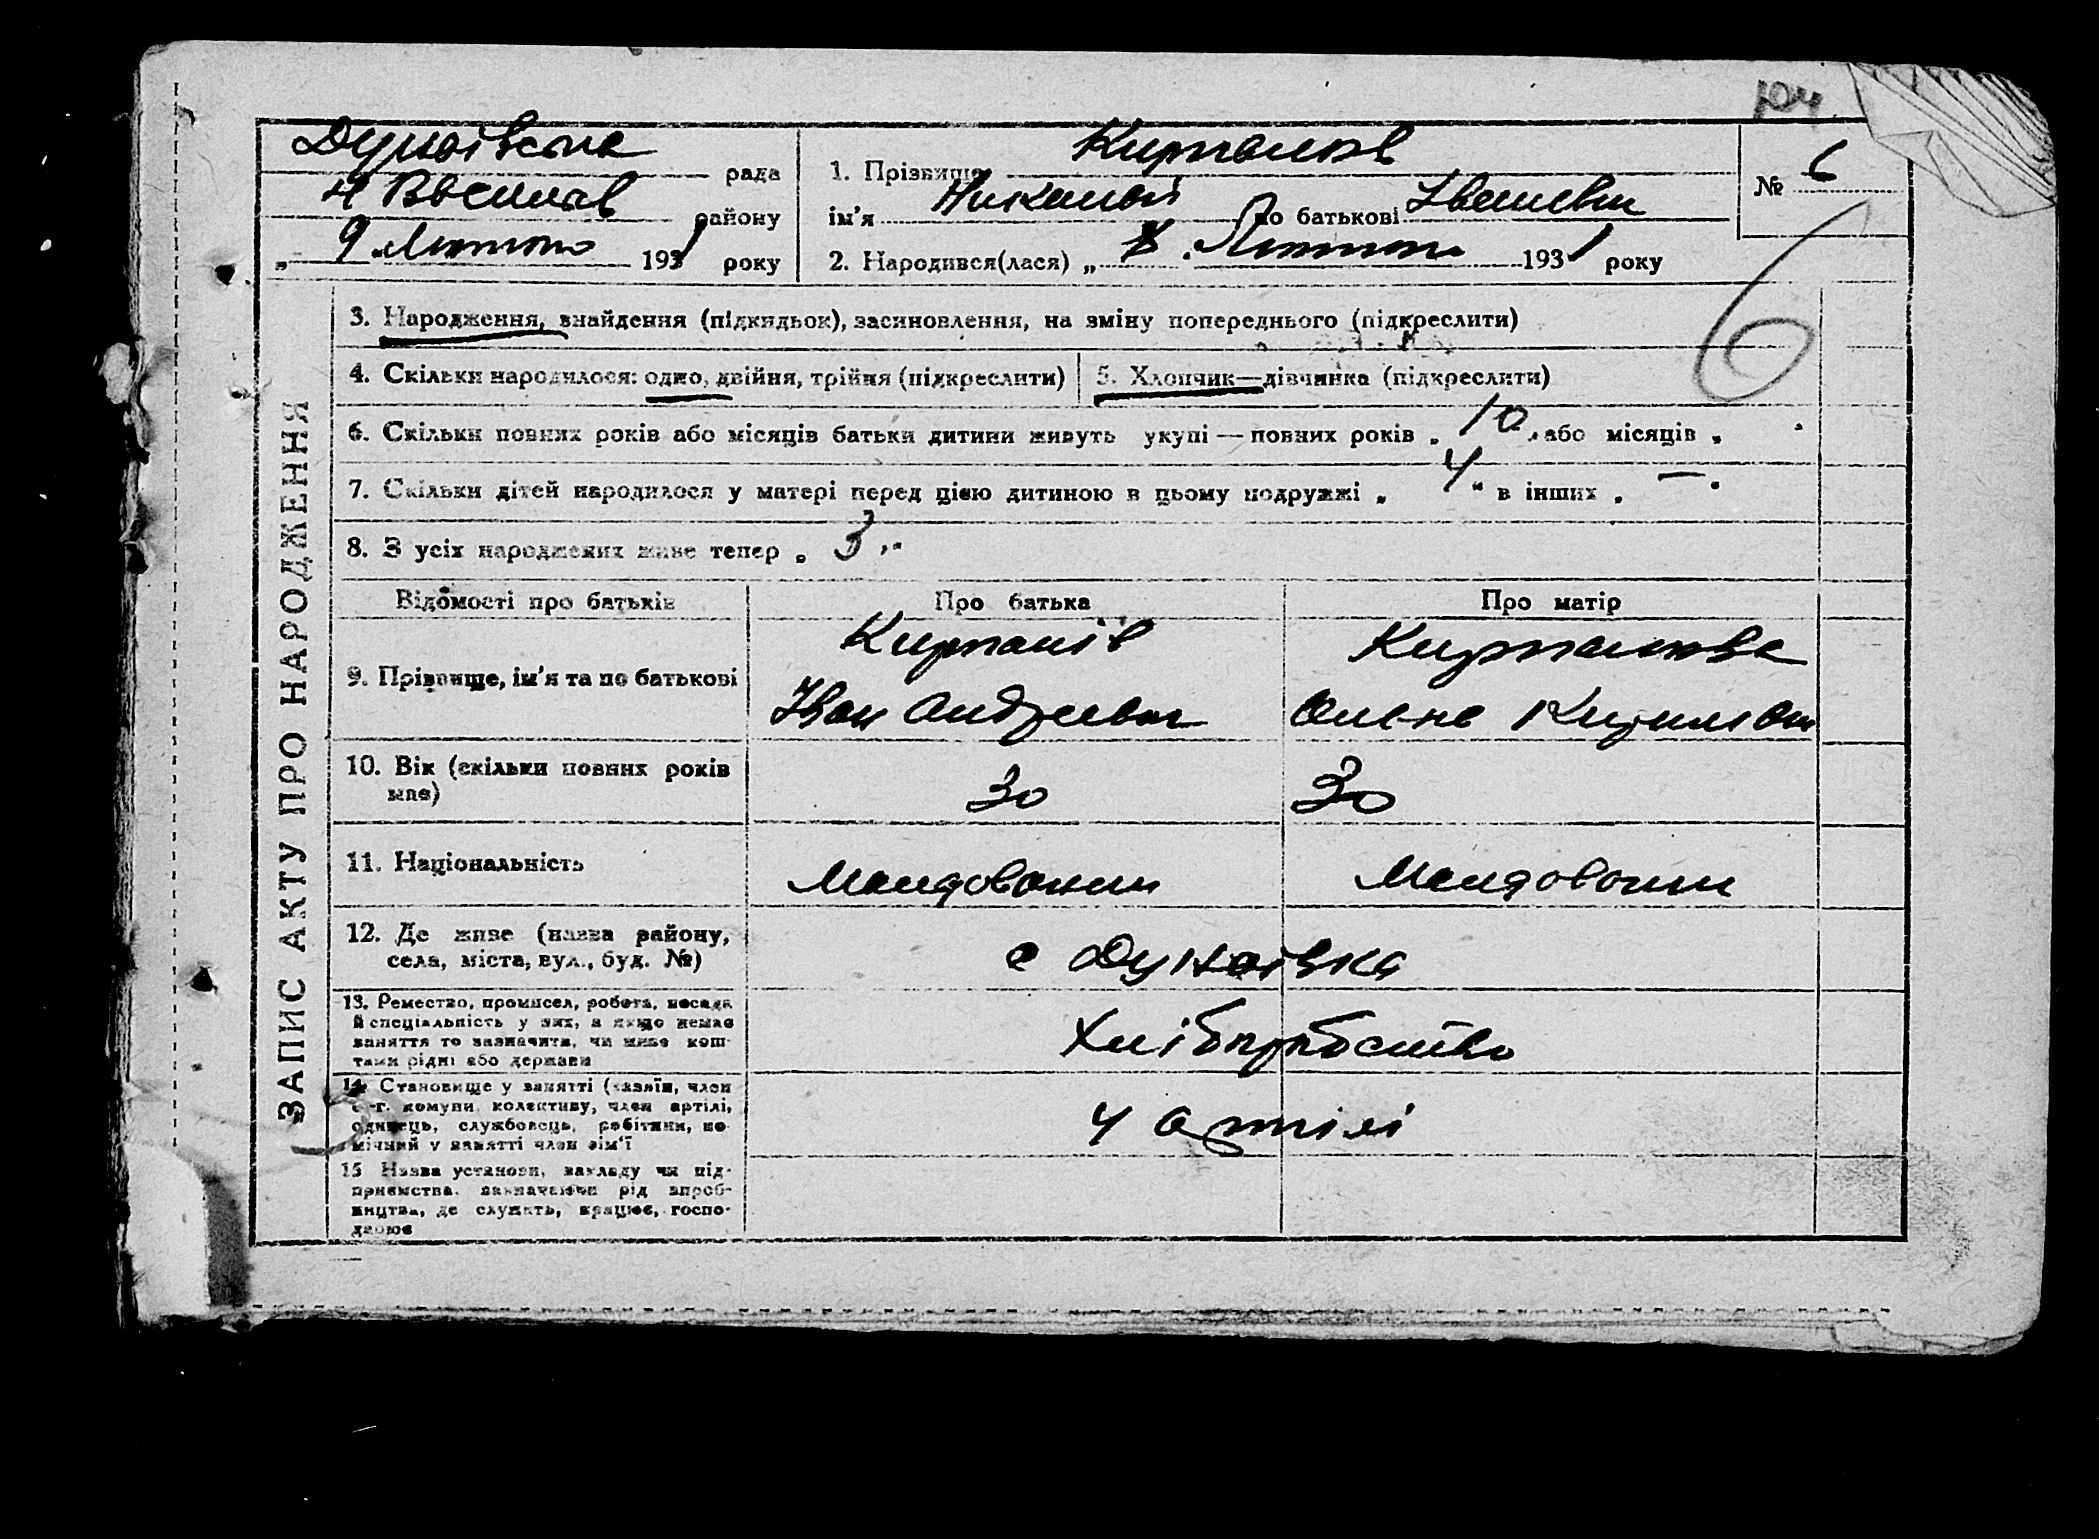 104
Дунаївська рада
Н Василів району
„ 9 Лютого 1931 року
1. Прізвище Кирпанов
ім'я Николай по батькові Іванович
2. Народився(лася) „ 7 Лютого 1931 року
№ 6
6
ЗАПИС АКТУ ПРО НАРОДЖЕННЯ
3. Народження, знайдення (підкидьок), засиновлення, на зміну попереднього (підкреслити)
4. Скільки народилося: одно, двійня, трійня (підкреслити)
5. Хлопчик—дівчинка (підкреслити)
6. Скільки повних років або місяців батьки дитини живуть укупі — повних років „ 10 „ або місяців „ "
7. Скільки дітей народилося у матері перед цією дитиною в цьому подружжі „ 4 " в інших „ — "
8. З усіх народжених живе тепер „ 3 "
Відомості про батьків
Про батька
Про матір
9. Прізвище, ім'я та по батькові
Кирпанів
Іван Андреевич
Кирпанова
Олена Кирилов
10. Вік (скільки повних років має)
30
30
11. Національність
Молдованин
Молдовани
12. Де живе (назва району,
села, міста, вул., буд. №)
с Дунаівка
13. Ремество, промисел, робота, посада
й спеціяльність у них, а якщо немає
заняття то зазначити, чи живе кош-
тами рідні або держави
Хліборобство
14. Становище у занятті (хазяїн, член
с.-г. комуни, колективу, член артілі,
одинець, службовець, робітник, по-
мічний у занятті член сім'ї
Ч артілі
15 Назва установи, закладу чи під-
приємства, зазначаючи рід вироб-
ництва, де служить, працює, госпо-
дарює